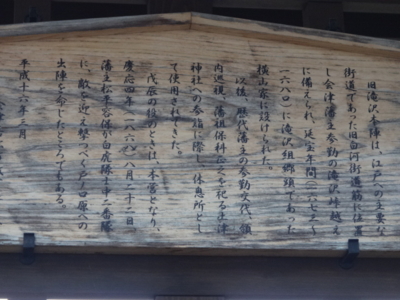 旧滝沢本陣は、江戸への主要な
街道であった旧白河街道筋に位置
し会津藩主参勤の滝沢峠越え
に備えられ、延宝年間(一六七三~
一六八〇)に滝沢組郷頭であった
横山家に設けられた。
以後、歴代藩主の参勤交代、領
内巡視、藩祖保科正之を祀る土津
神社への参詣に際し、休息所とし
て使用されてきた。
戊辰の役のときは、本営となり、
慶応四年(一八六八)八月二十二日、
藩主松平容保が白虎隊士中二番隊
に、敵を迎え撃つべく戸ノ口原への
出陣を命じたところでもある。
平成十六年三月